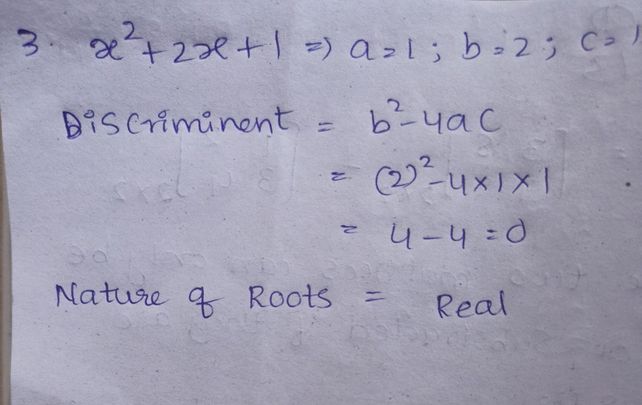 3. x²+2x+1 ⇒ a=1; b=2; c=1
Discriminent = b²-4ac
= (2)²-4×1×1
= 4-4=0
Nature of Roots = Real